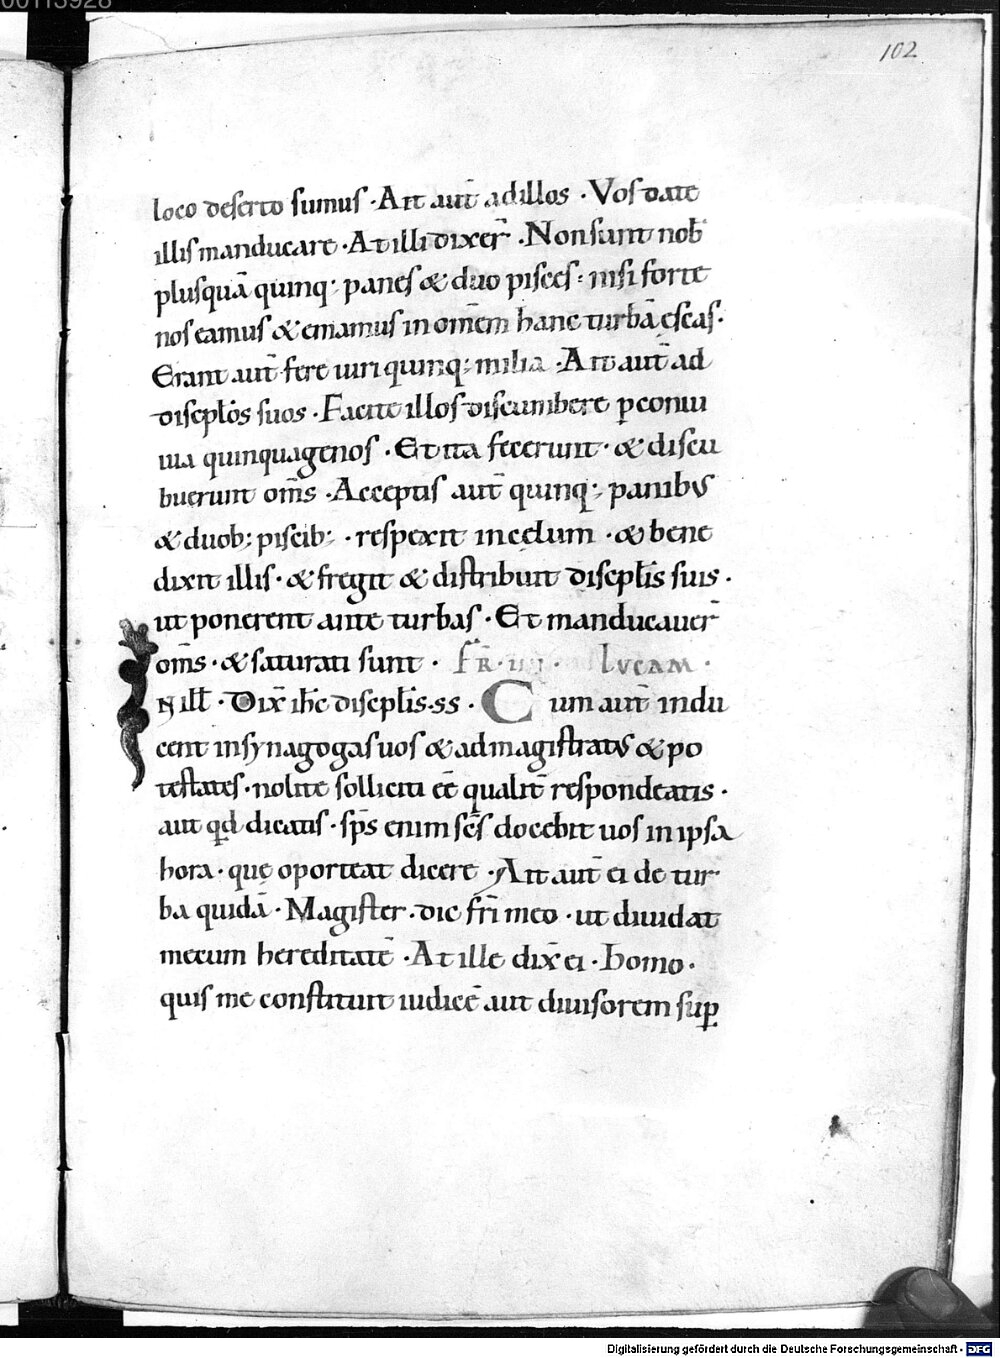 00113928
102
loco deserto sumus · Ait aut̄ ad illos · Vos date
illis manducare · At illi dixer̄ · Non sunt nob̄
plusquā quinq; panes & duo pisces : nisi forte
nos eamus & emamus in om̄em hanc turbā escas ·
Erant aut̄ fere uiri quinq; milia · Ait aut̄ ad
discipl̄os suos · Facite illos discumbere p̲ conui
uia quinquagenos · Et ita fecerunt · & discu
buerunt om̄s · Acceptis aut̄ quinq; panibus
& duob; piscib; · respexit in cęlum · & bene
dixit illis · & fregit & distribuit discipl̄is suis ·
ut ponerent ante turbas · Et manducauer̄
om̄s · & saturati sunt · FR̄ · IIII · LVCAM ·
IN ill̄ · Dix̄ ih̄c discipl̄is · ss · Cum aut̄ indu
cent in synagogas uos & ad magistratus & po
testates · nolite solliciti ēē qualit̄ respondeatis ·
aut qd̄ dicatis · sp̄s enim sc̄s docebit uos in ipsa
hora · quę oporteat dicere · Ait aut̄ ei de tur
ba quidā · Magister · dic fr̄i meo · ut diuidat
mecum hereditatē · At ille dix̄ ei · Homo ·
quis me constituit iudicē aut diuisorem sup̲
Digitalisierung gefördert durch die Deutsche Forschungsgemeinschaft - DFG